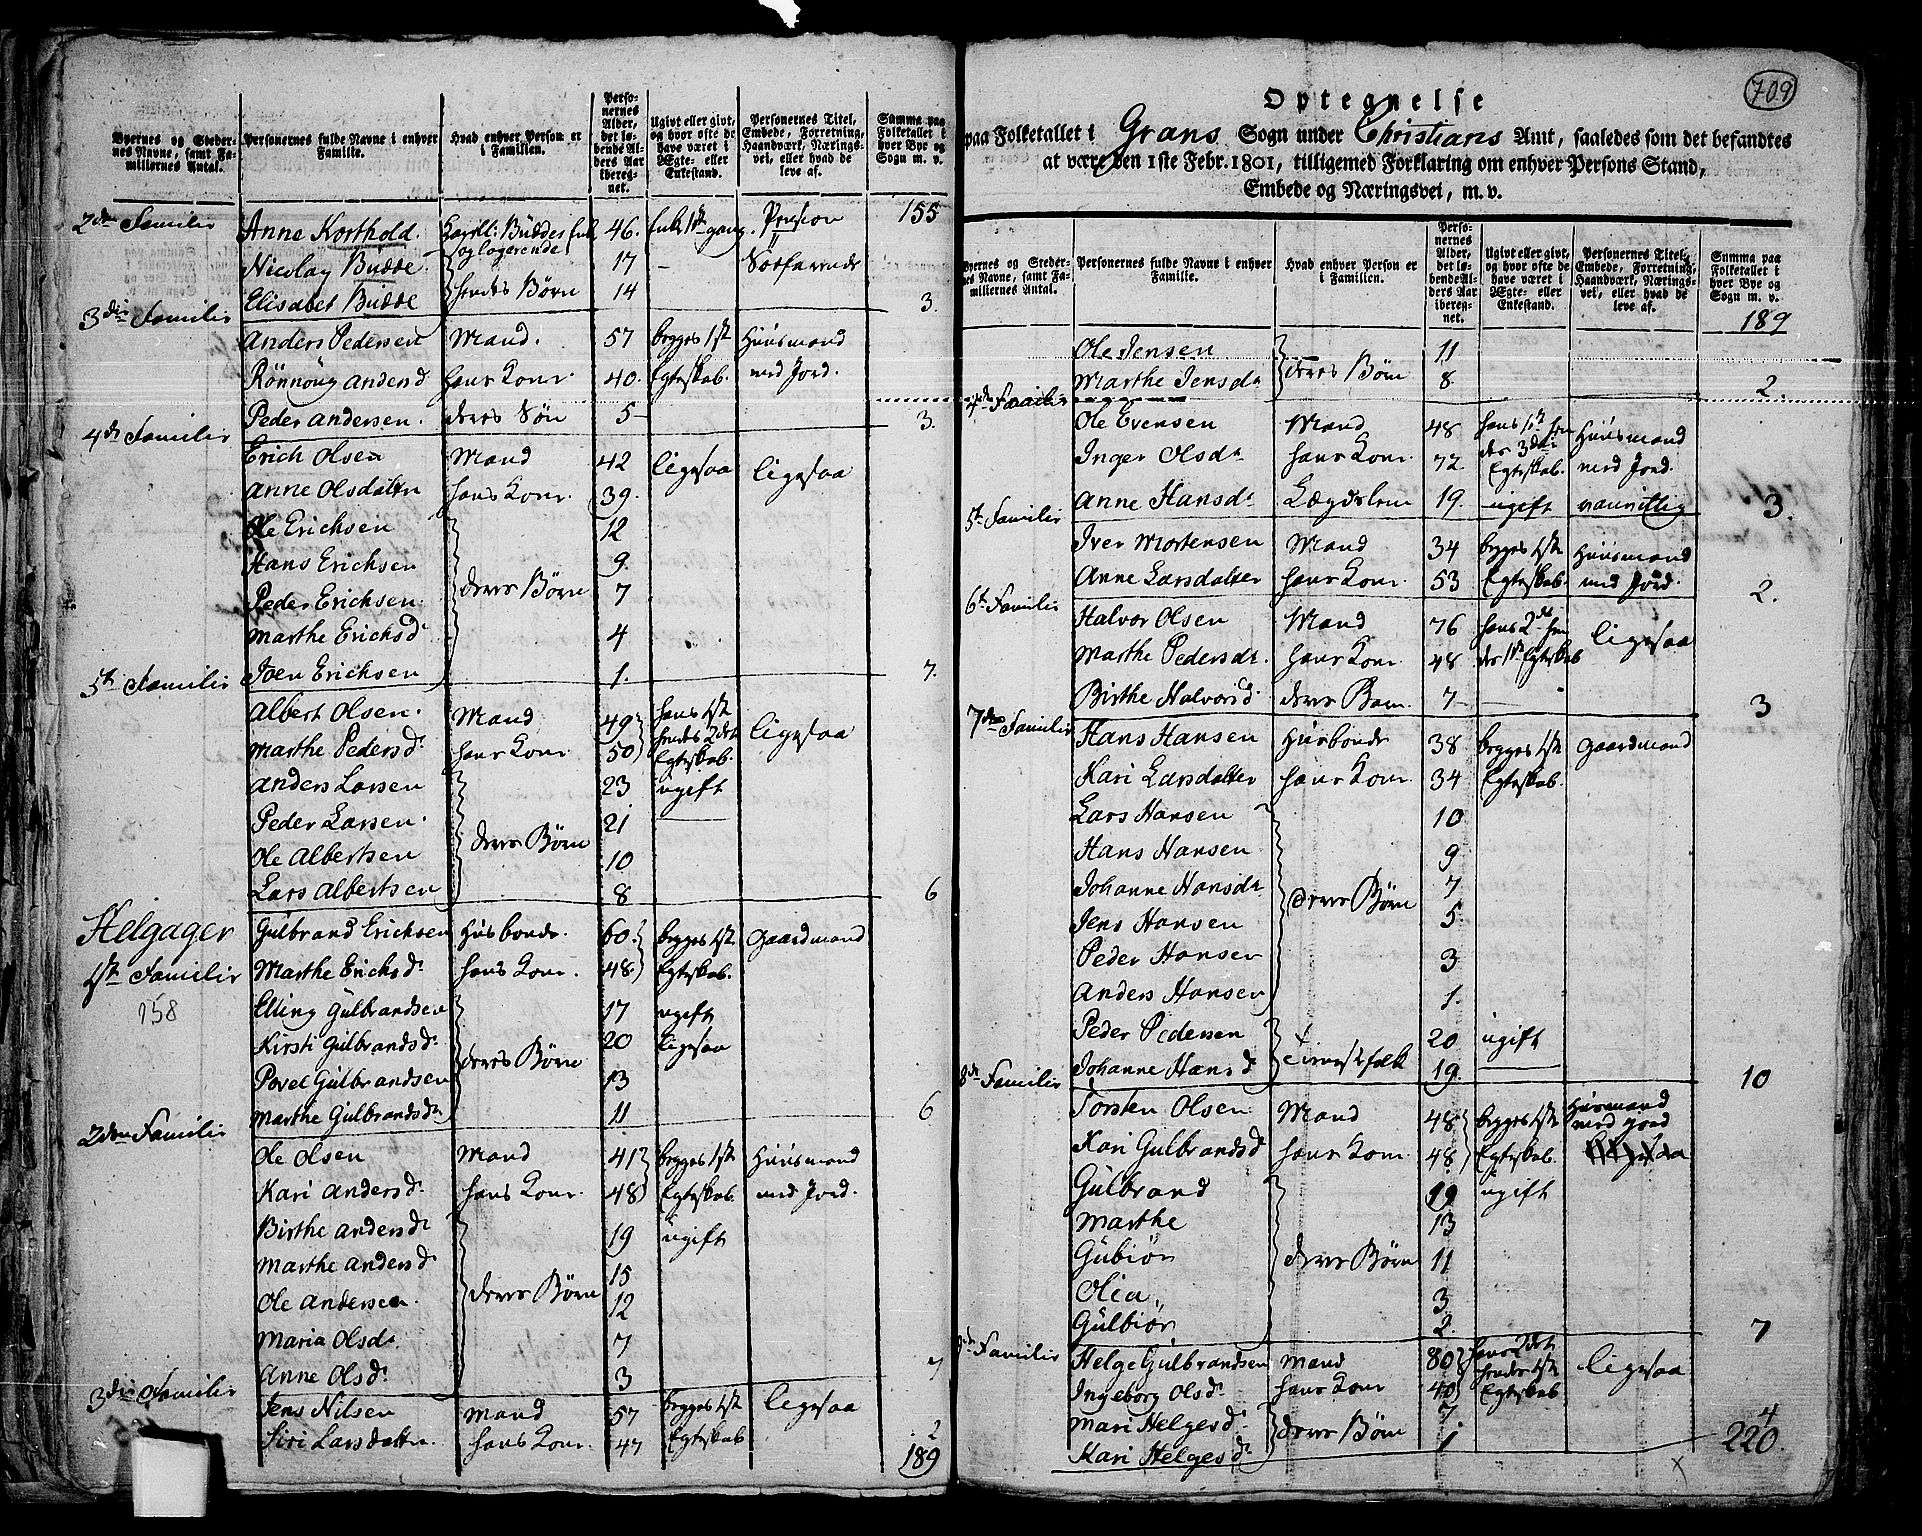 Byernes og Steder-
nes Navne, samt Fa-
miliernes Antal.
Personernes fulde Navne i enhver
Familie.
Hvad enhver Person er
i Familien.
Perso-
nernes
Alder,
det lø-
bende Al-
ders Aar
iberegn-
net.
Ugivt eller givt,
og hvor ofte de
have været i
Ægte- eller
Enkestand.
Personernes Titel,
Embede, Forretning,
Haandværk, Nærings-
vei, eller hvad de
leve af.
Summa paa
Folketallet i
hver Bye og
Sogn m. v.
155
2den Familie Anne Korthold 46. Enke 1ste gang. Pension
og logerende
Nicolay Budde 17 – Søefarende
Elisabet Budde hendes Børn 14 3.
3die Familie
Anders Pedersen Mand. 57 begges 1ste Huusmand
Rönnöug Andersd hans Kone. 40. Egteskab. med Jord.
Peder Andersen. deres Søn 5 3.
4de Familie
Erich Olsen Mand 42 ligesaa ligesaa
Anne Olsdatter hans Kone. 39.
Ole Erichsen 12
Hans Erichsen 9.
Peder Erichsen deres Børn 7
Marthe Erichsd. 4
Joen Erichsen 1. 7.
5te Familie
Albert Olsen. Mand 49 hans 1ste ligesaa
Marthe Pedersd. hans Kone 50 hendes 2det
Egteskab.
Anders Larsen 23 ugift
Peder Larsen. 21
Ole Albertsen deres Børn 10
Lars Albertsen 8 6
Helgager
1ste Familie
158
Gulbrand Erichsen Husbonde. 60. begges 1ste Gaardmand
Marthe Erichsd. hans Kone. 48 Egteskab.
Elling Gulbrandsen 17 ugift
Kirsti Gulbrandsd. 20 ligesaa
Povel Gulbrandsen deres Børn 13
Marthe Gulbrandsdr 11 6
2den Familie
Ole Olsen Mand 41 begges 1ste Huusmand
Kari Andersd. hans Kone. 48 Egteskab. med Jord.
Birthe Andersdr 19 ugift
Marthe Andersd 15
Ole Andersen. deres Børn 12
Maria Olsdr 7
Anne Olsd. 3 7
3die Familie
Jens Nilsen Mand 57 begges 1ste ligesaa
Siri Larsdatter hans Kone. 47 Egteskab 2
189
709
Optegnelse
paa Folketallet i Grans Sogn under Christians Amt, saaledes som det befandtes
at være den 1ste Febr. 1801, tilligemed Forklaring om enhver Persons Stand,
Embede og Næringsvei, m. v.
Byernes og Steder-
nes Navne, samt Fa-
miliernes Antal.
Personernes fulde Navne i enhver
Familie.
Hvad enhver Person er
i Familien.
Perso-
nernes
Alder,
det lø-
bende Al-
ders Aar
iberegn-
net.
Ugivt eller givt,
og hvor ofte de
have været i
Ægte- eller
Enkestand.
Personernes Titel,
Embede, Forretning,
Haandværk, Nærings-
vei, eller hvad de
leve af.
Summa paa
Folketallet i
hver Bye og
Sogn m. v.
189
Ole Jensen 11
Marthe Jensdr deres Børn 8 2.
4de Familie
Ole Evensen Mand 48 hans 1ste hen Huusmand
Inger Olsdr hans Kone. 72 des 3die med Jord.
Egteskab.
Anne Hansdr Lægdslem 19. ugift vanvittig 3.
5te Familie
Iver Mortensen Mand 34 begges 1ste Huusmand
Anne Larsdatter hans Kone. 53 Egteskab. med Jord. 2.
6te Familie
Halvor Olsen Mand 76 hans 2det hen ligesaa
Marthe Pedersdr. hans Kone. 48 des 1ste Egteskab
Birthe Halvorsd. deres Barn 7 – 3
7de Familie
Hans Hansen Husbonde 38 begges 1ste Gaardmand
Kari Larsdatter hans Kone. 34 Egteskab.
Lars Hansen 10
Hans Hansen 9
Johanne Hansdr deres Børn 7
Jens Hansen 5.
Peder Hansen 3
Anders Hansen 1.
Peder Pedersen 20 ugift
Johanne Hansd tienestfolk 19. 10
8de Familie
Torsten Olsen Mand 48 begges 1ste Husmand
med Jord
Kari Gulbrandsd hans Kone. 48 Egteskab.
Gulbrand 19 ugift
Marthe 13
Gubiør deres Børn 11
Olia 3
Gulbiør 2. 7
Familie
Helge Gulbrandsen Mand 80 hans 2det ligesaa
Ingeborg Olsd. hans Kone 40 hendes 1ste
Egteskab
Mari Helgesd. 7 4
Kari Helgesd. deres Børn 1 220.